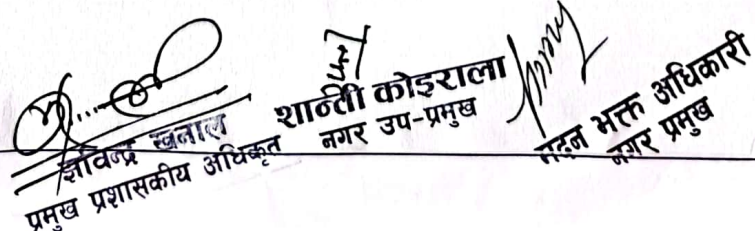 खनाल
प्रमुख प्रशासकीय अधिकृत
शान्ती कोइराला
नगर उप-प्रमुख
मदन भक्त अधिकारी
नगर प्रमुख